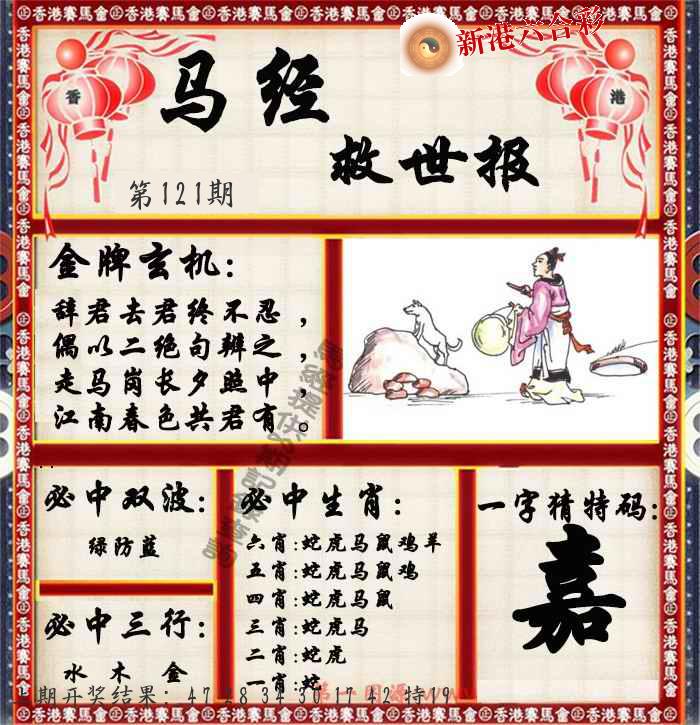 新港六合彩
香
港
马经
救世报
第121期
金牌玄机:
辞君去君终不忍，
偶以二绝句辨之，
走马岗长夕照中，
江南春色共君有。
必中双波:
绿防蓝
必中三行:
水 木 金
必中生肖:
六肖:蛇虎马鼠鸡羊
五肖:蛇虎马鼠鸡
四肖:蛇虎马鼠
三肖:蛇虎马
二肖:蛇虎
一肖:蛇
一字猜特码:
嘉
期开奖结果: 47 28 34 30 17 42 特19
香港赛馬會